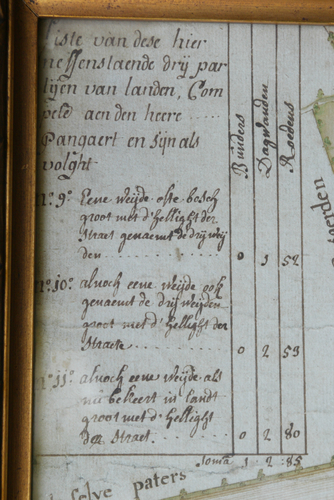 Liste van dese hier
neffenstaende drij par
tijen van landen, Com
pete aen den heere .....
Pangaert en sijn als
volght
Bunders
Dagwanden
Roedens
n.º 9.º Eene weijde ofte bosch
groot met d'hellight der
Straet genaemt de drij weij
den . . . . . . . . . . 0 1 52
n.º 10.º alnoch eene weijde ook
genaemt de drij weijden
groot met d'hellight der
Straete . . . . . . . . 0 2 53
n.º 11.º alnoch eene weijde als
nu bekeert in landt
groot met d'hellight
der Straet . . . . . . . 0 2 80
Soma 1 2 85
selve paters
oerden